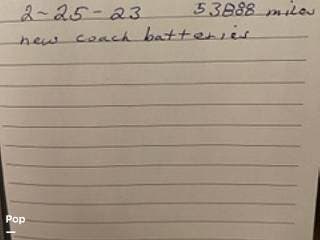 2-25-23 53888 miles
new coach batteries
Pop